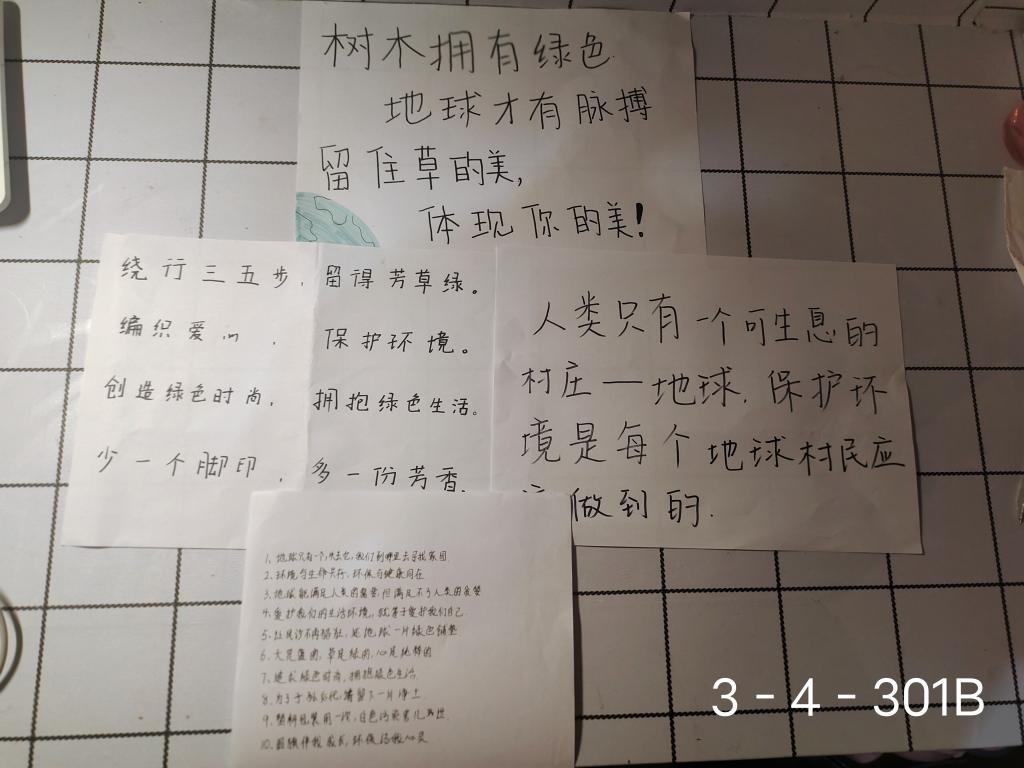 树木拥有绿色
地球才有脉搏
留住草的美,
体现你的美!
绕行三五步,留得芳草绿。
编织爱心,保护环境。
创造绿色时尚,拥抱绿色生活。
少一个脚印,多一份芳香.
人类只有一个可生息的
村庄—地球.保护环
境是每个地球村民应
做到的.
1、地球只有一个,失去它,我们到哪里去寻找家园.
2、环境与生命共存,环保与健康同在
3、地球能满足人类的需要,但满足不了人类的贪婪
4、爱护我们的生活环境,就等于爱护我们自己.
5、让黄沙不再猖狂,还地球一片绿色铺垫
6、天是蓝的,草是绿的,心是纯粹的
7、追求绿色时尚,拥抱绿色生活.
8、为子子孙孙代,请留下一片净土
9、塑料包装用一次,白色污染害几世.
10、
3-4-301B